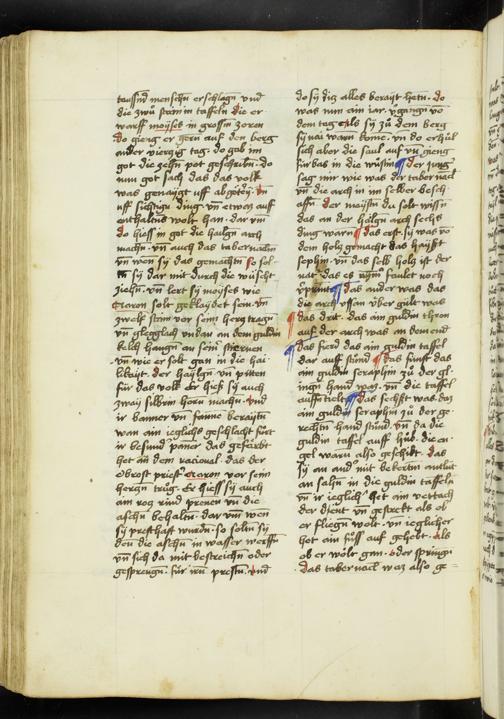 taussnt menschn erschlagn vnd
die zwu stain in taffeln die er
warff moyses in grossm zoren
do gieng er gern auff den berg
ander vierzig tag. do gab im
got die zehn pot geschribn. do
nun got sach das das volk
was genaygt uff abgötry. vn
uff sichtige ding vn etwas auff
enthaltns wolt han. dar vm
do hiess in got die hailgn arch
machn. vn auch das tabernackl
vn wen sy das gemachtn so sol-
tn sy dar mit durch die wüscht
ziehn. vn lert sy moyses wie
Aaron solt geklaydet sein. vn
zwelf stein vor seim herz tragn
vn glegglach vndan an dem guldin
kelch haugn an seim stiernen
vn wie er solt gan in die hai-
likait. der haylign vn pitten
für das volk. Er hiess sy auch
zway silbrin horn machn. vnd
ir banner vn fanne beraytn
wan ain ieglichs geschlächt fürt
ir besund paner das gefärbt
het an dem racional. das der
obrost priest Aaron vor seim
herzn trug. Er hiess sy auch
am rog rind prenen vn die
aschn behaltn. dar vm wen
sy presthaft wurdn. so soltn sy
den die aschn in wasser werffn
vn sich da mit bestreichn oder
gesprengn. für irn prestn. vnd
do sy diz alles berayt hetn. do
was nun ain iar vgangn vo
dem tag als sy zu dem berg
synai warn kome. vn do erhub
sich aber die saul auf vn gieng
fürbas in die wüstin der jung
sag mir wie was der tabernackl
vn die arch in im selber besch-
affn. der maystr du solt wissn
das an der hailgn arch sechs
ding warn. das erst. sy was vo
dem holz gemacht das haysst
sephim. vn das selb holz ist der
nat das es nym faulet noch
vprint. das ander was das
die arch ussan über gült was
das drit. das ain guldin thron
auff der arch was an dem end
das fierd das ain guldin taffel
dar auff stund das fünft das
ain guldin seraphin zu der gl-
ingn hand waz. vn die taffel
auffenthielt das sechst was daz
ain guldin seraphin zu der ge-
rechtn hand stund. vn da die
guldin taffel auff hub. die en-
gel warn also geschikt. das
sy an and mit bekertm antlüt
an sahn in die guldin taffeln
vn ir ieglich het ain vettach
der dient vn gestrackt als ob
er fliegn wolt. vn ieglicher
het ain fuss auff gehebt. als
ob er wölt gan. oder springn
das tabernackl waz also ge=